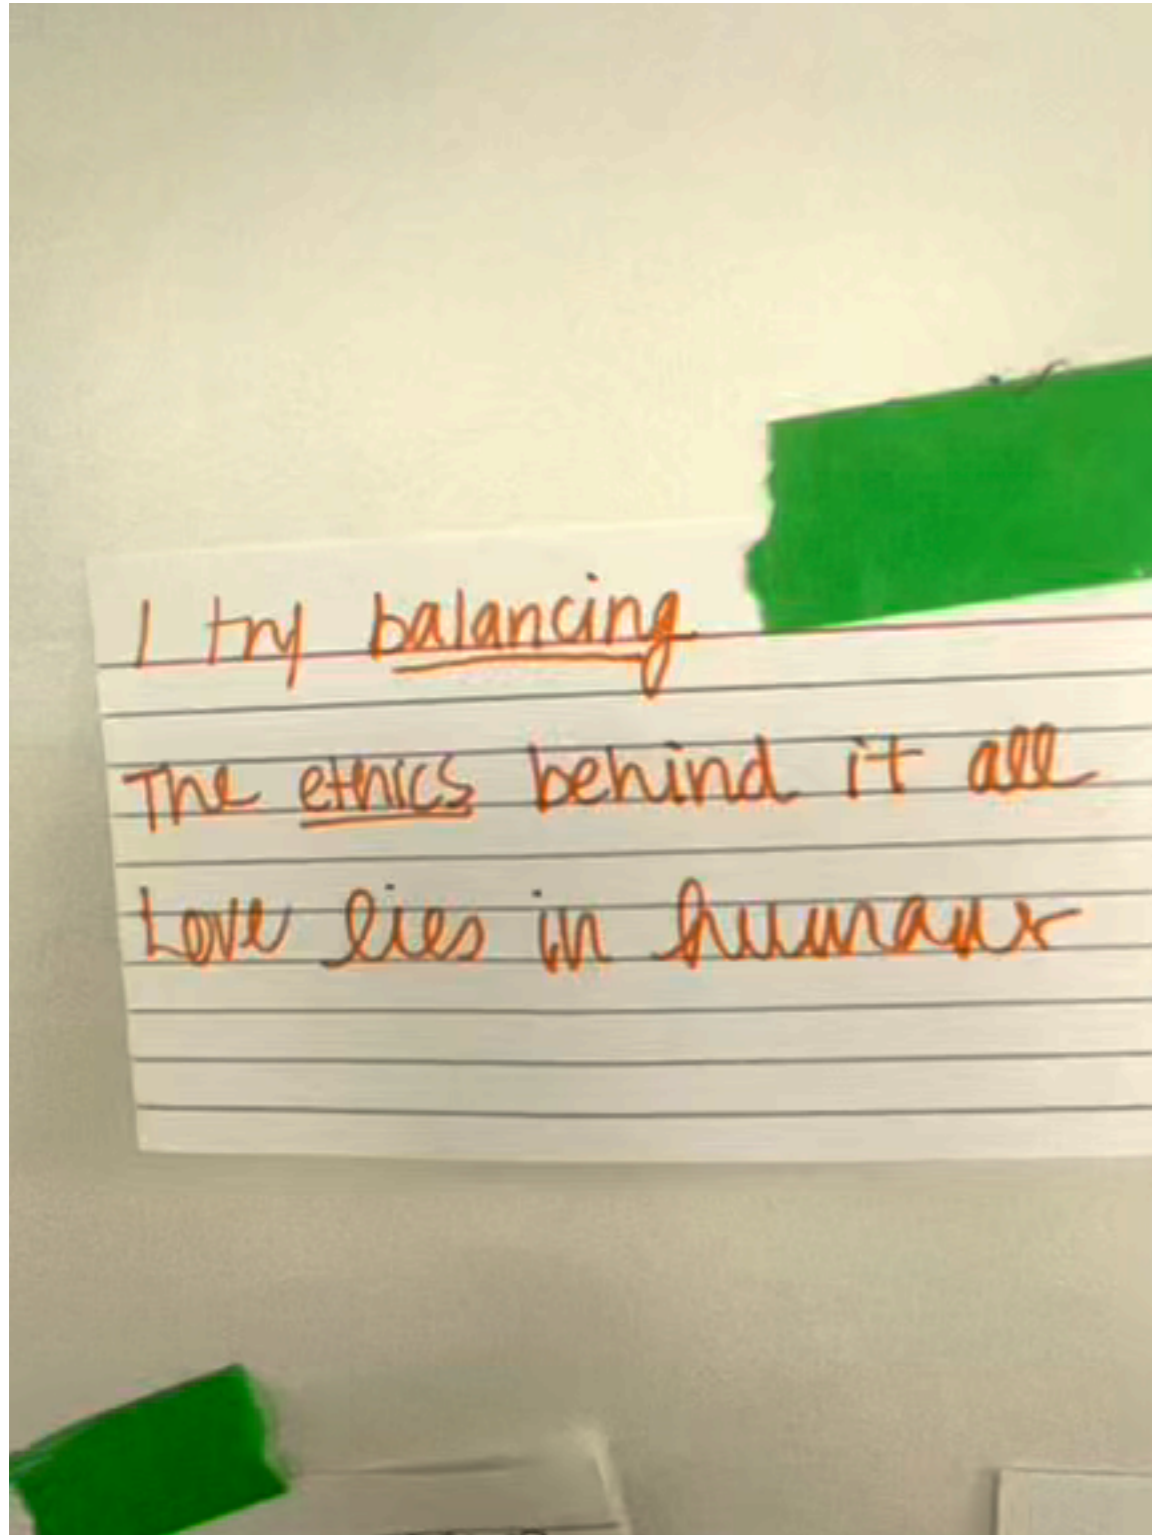 I try balancing
The ethics behind it all
Love lies in humans